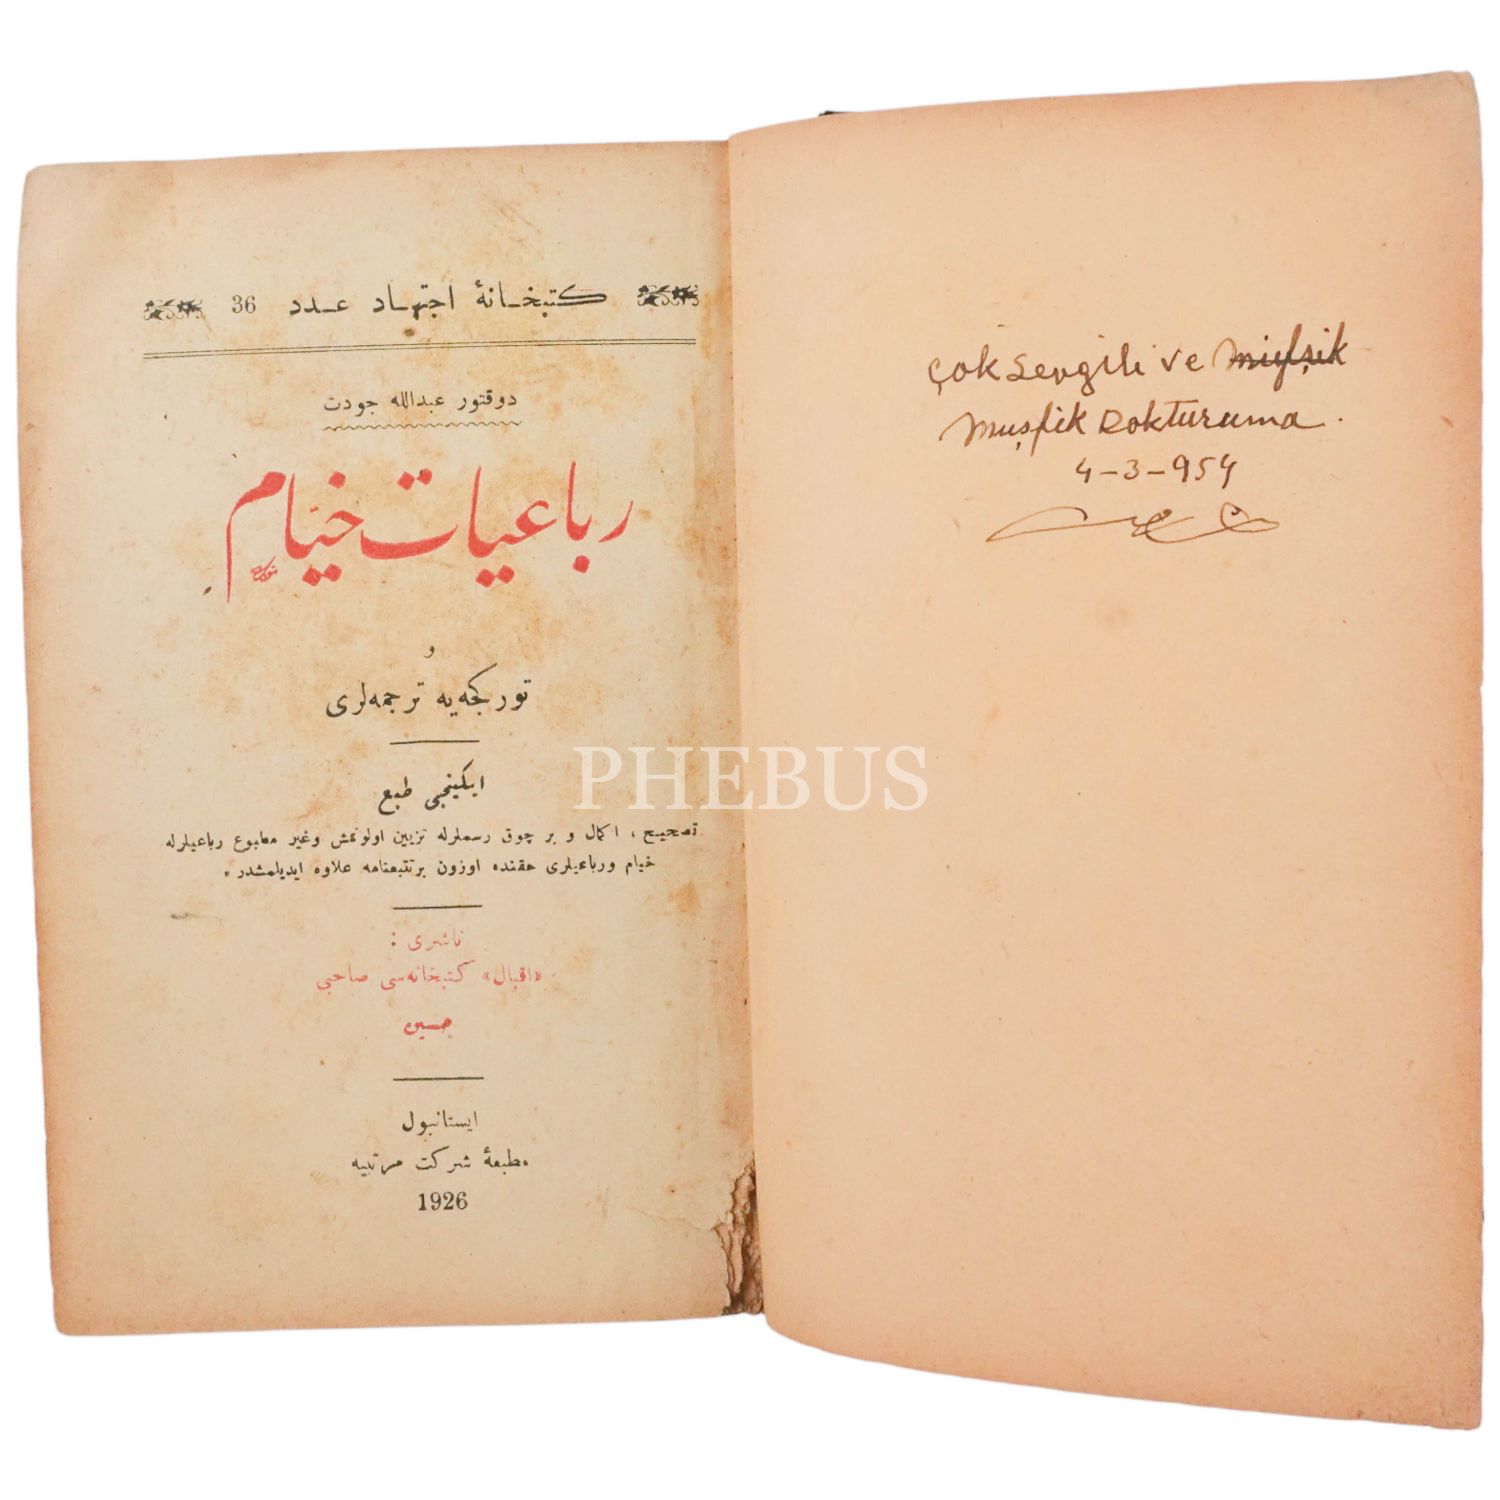 كتبخانۀ اجتهاد عدد 36
دوقتور عبدالله جودت
رباعيات خيام
و
توركجه‌يه ترجمه‌لرى
ايكينجى طبع
تصحيح ، اكمال و بر چوق رسملرله تزيين اولونمش وغير مطبوع رباعيلرله
خيام ورباعيلرى حقنده اوزون برتتبعنامه علاوه ايديلمشدر .
ناشرى :
«اقبال» كتبخانه‌سى صاحبى
حسين
ايستانبول
مطبعۀ شركت مرتبيه
1926
Çok Sevgili ve
Müşfik Dokturuma .
4-3-954
PHEBUS